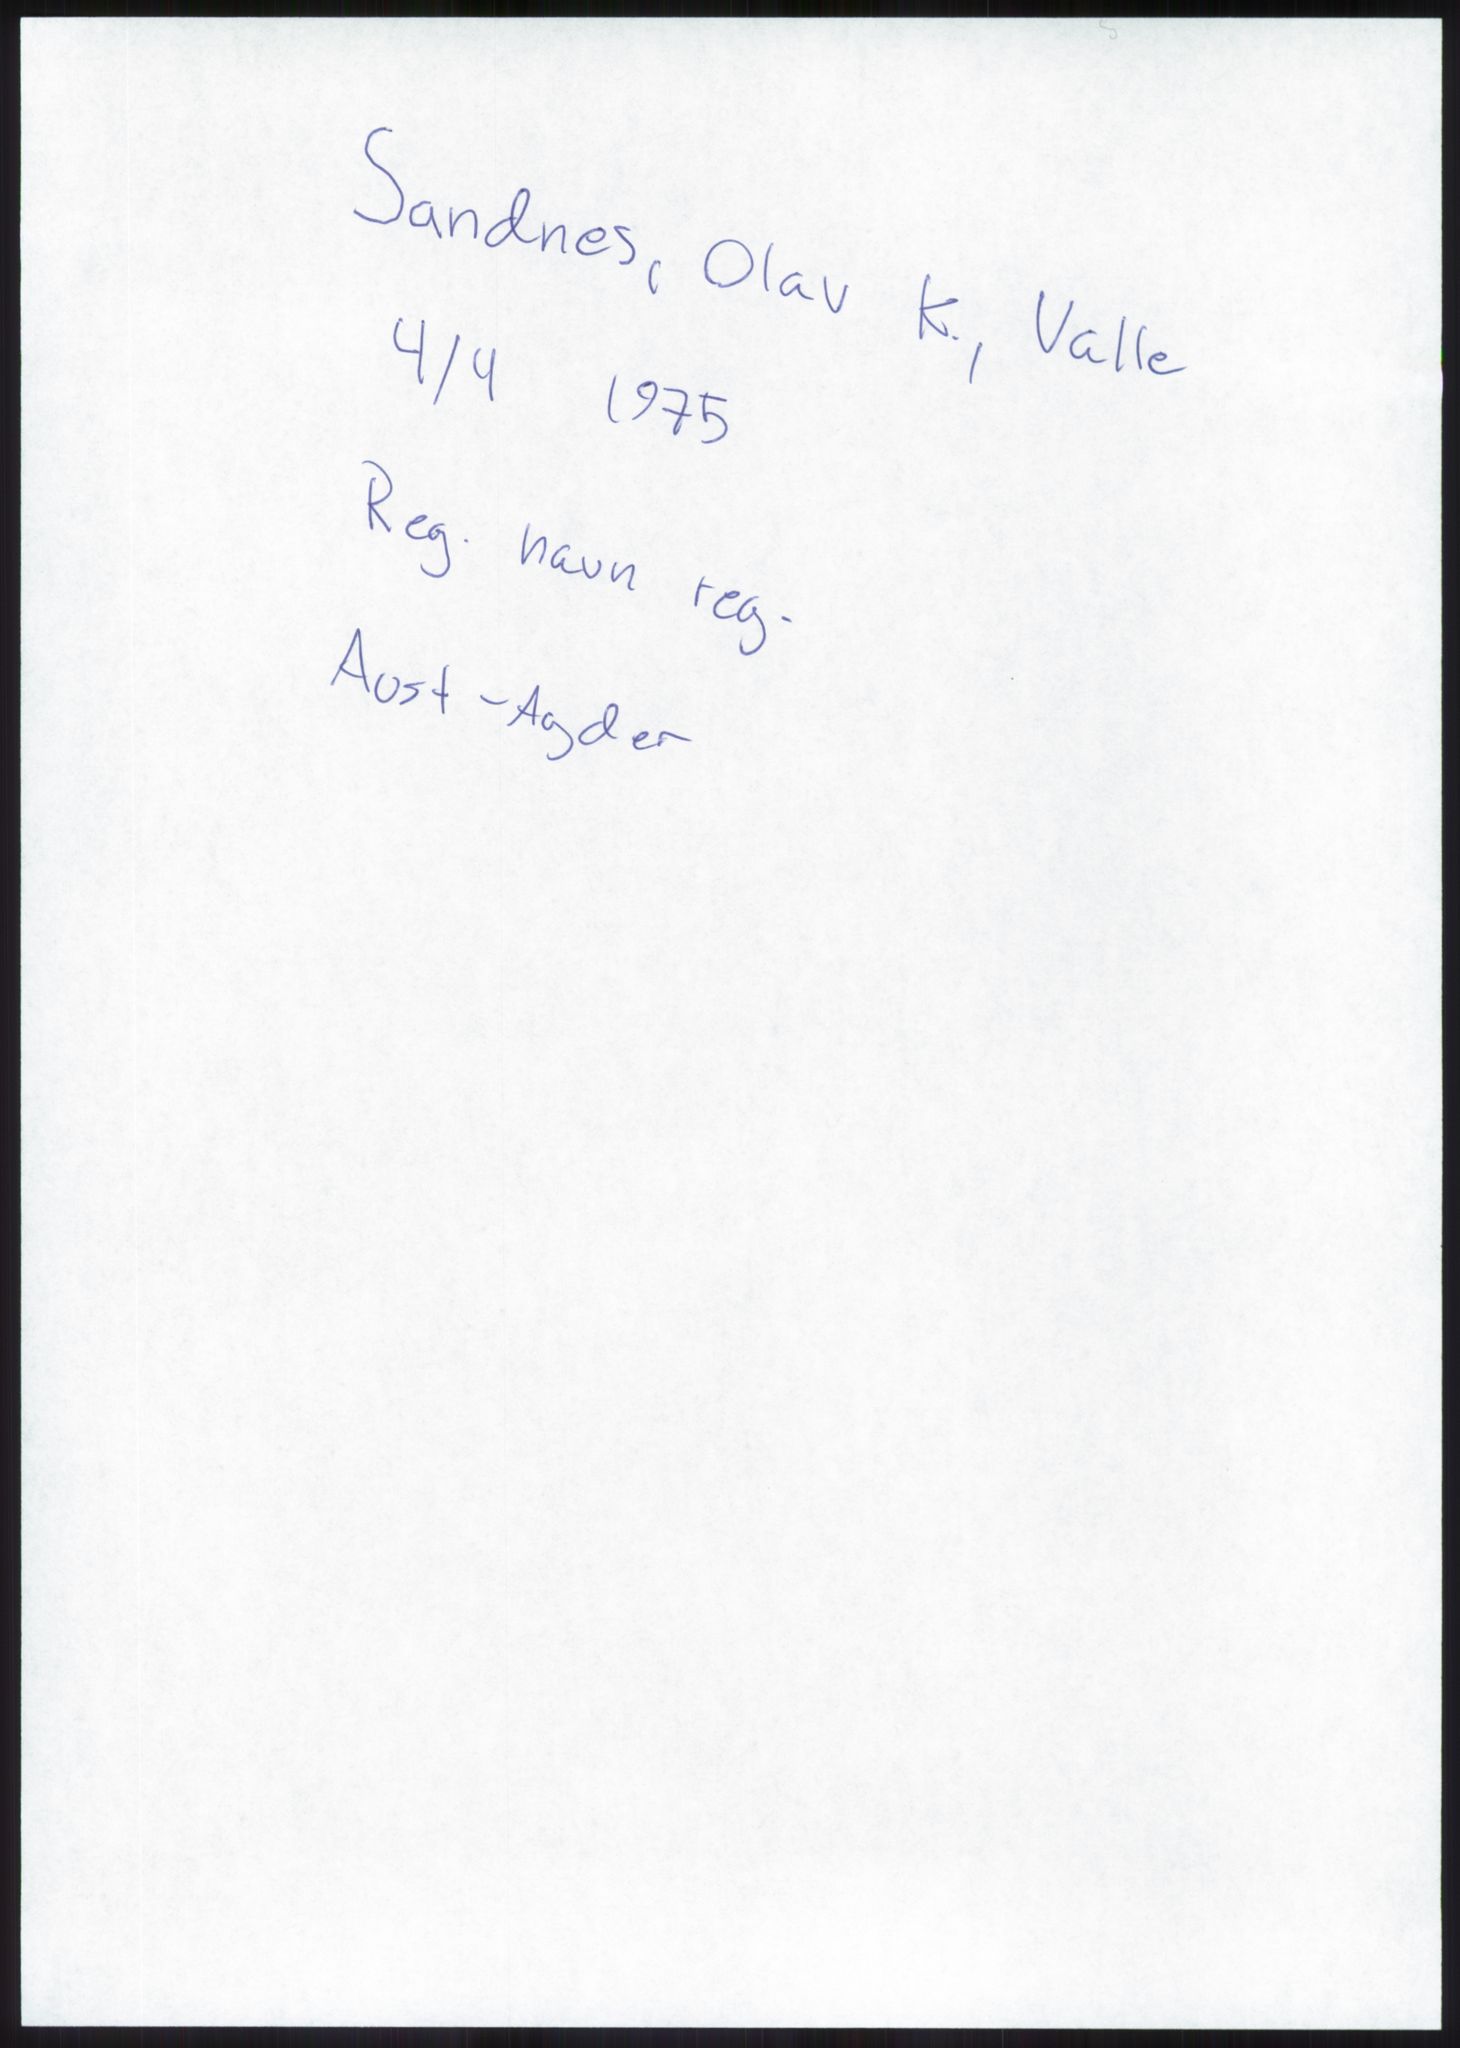 Sandnes, Olav K., Valle
4/4 1975
Reg. navn reg.
Aust-Agder